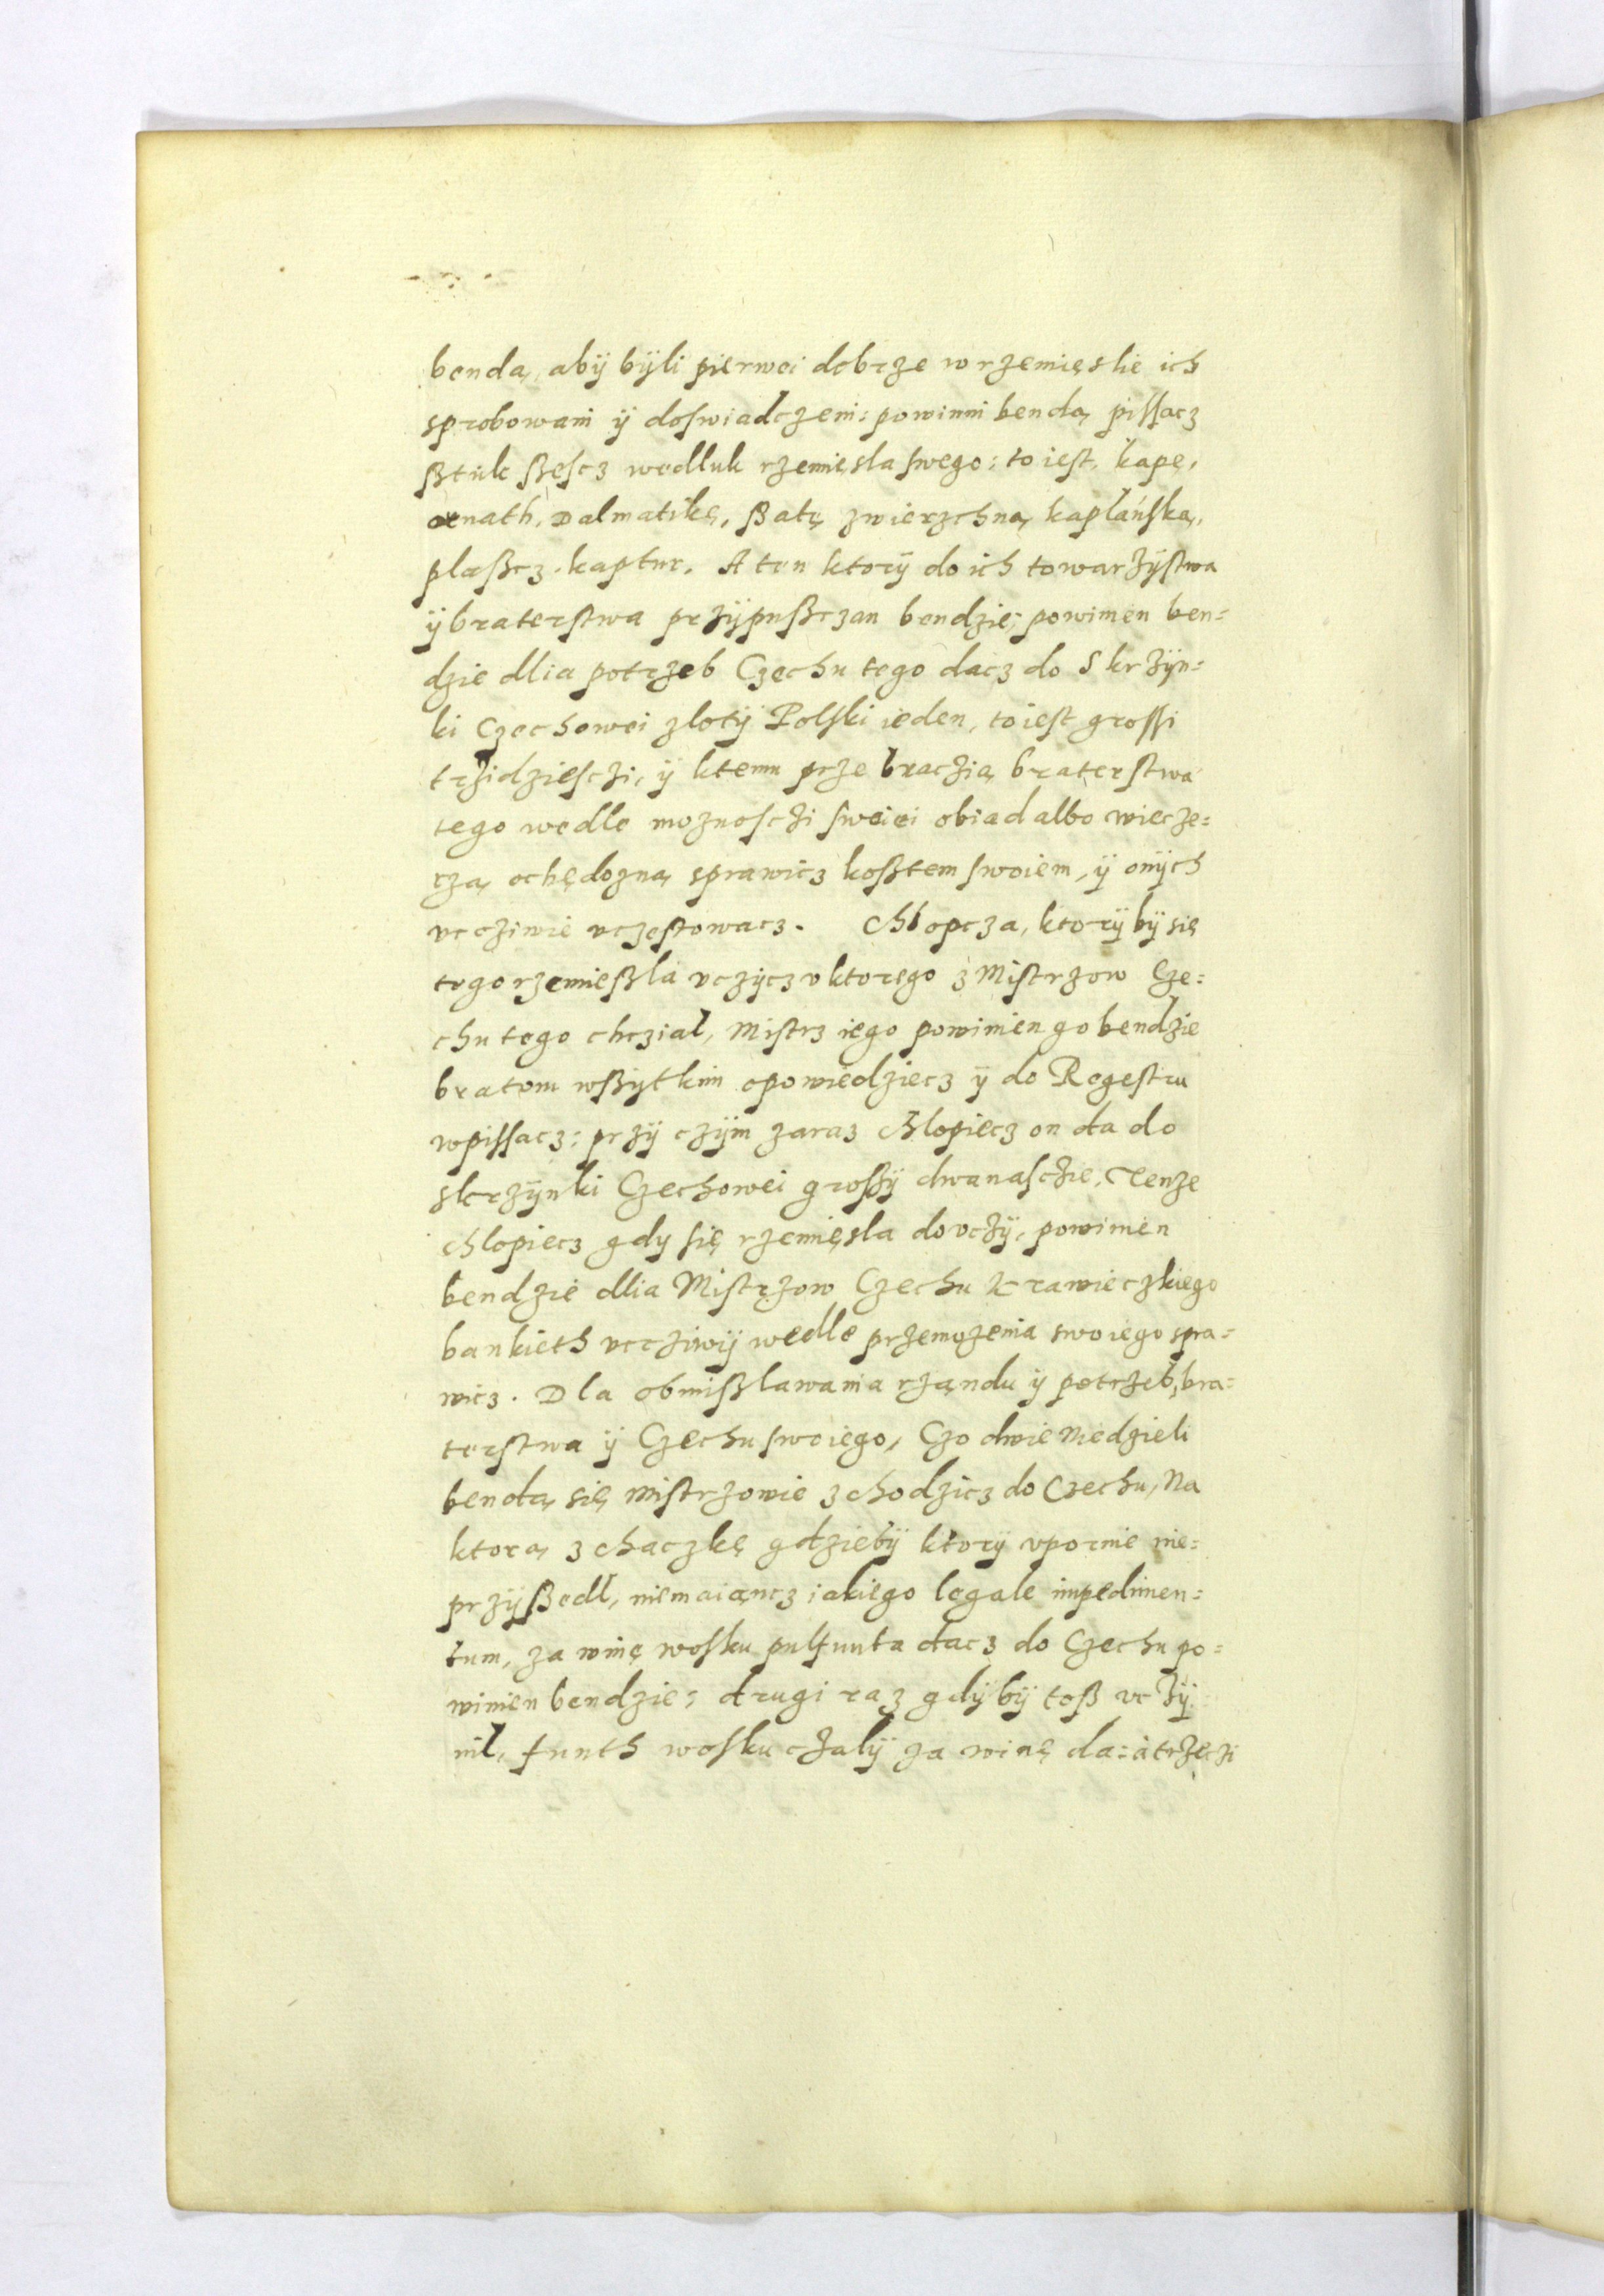 bendą, abÿ bÿli pierwei dobrze w rzemięslie ich
sprobowani ÿ doswiadczeni: powinni bendą pissacz
ßtuk ßescz wedluk rzemięsla swego: to iest, kapę,
ornath, Dalmatikę, ßatę zwierzchną kaplańską,
plaßcz, kaptur. A ten ktorÿ do ich towarzÿstwa
ÿ braterstwa przÿpußczan bendzie, powinien ben=
dzie dlia potrzeb Czechu tego dacz do Skrzÿn=
ki Czechowei zlotÿ Polski ieden, to iest grossi
trzidziesczi, ÿ ktemu prze braczią braterstwa
tego wedle moznosczi swoiei obiad albo wiecze=
rzą ochędozną sprawicz koßtem swoiem, ÿ onÿch
vczciwie vczestowacz. Chlopcza, ktorÿ bÿ się
tego rzemießla vczÿcz v ktorego z Mistrzow Cze=
chu tego chczial, Mistrz iego powinien go bendzie
bratom wßÿtkim opowiedziecz ÿ do Regestru
wpissacz: przÿ czÿm zaraz Chlopiecz on da do
skrzÿnki Czechowei großÿ dwanasczie. Tenze
Chlopiecz gdy się rzemięsla douczÿ, powinien
bendzie dlia Mistrzow Czechu Krawieczkiego
bankieth vcczivÿ wedle przemozenia swoiego spra=
wicz. Dla obmißlawania rzandu ÿ potrzeb, bra=
terstwa ÿ Czechu swoiego, Czo dwie Niedzieli
bendą się Mistrzowie zchodzicz do Czechu, Na
ktorą zchaczkę gdziebÿ ktorÿ vpornie nie=
przÿßedl, niemaiancz iakiego legale impedimen=
tum, za winę wosku pulfunta dacz do Czechu po=
winien bendzie: drugi raz gdÿ bÿ toß vczÿ
nil, funth wosku czalÿ za winę da: a trzeczi